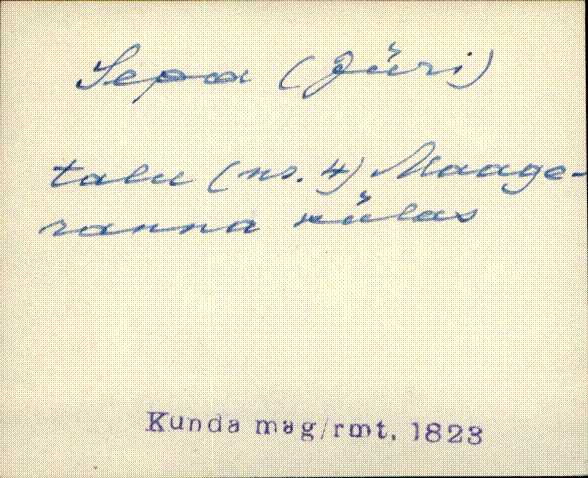 Sepa (Jüri)
talu (nr. 4) Maage-
ranna külas
Kunda mag/rmt. 1823